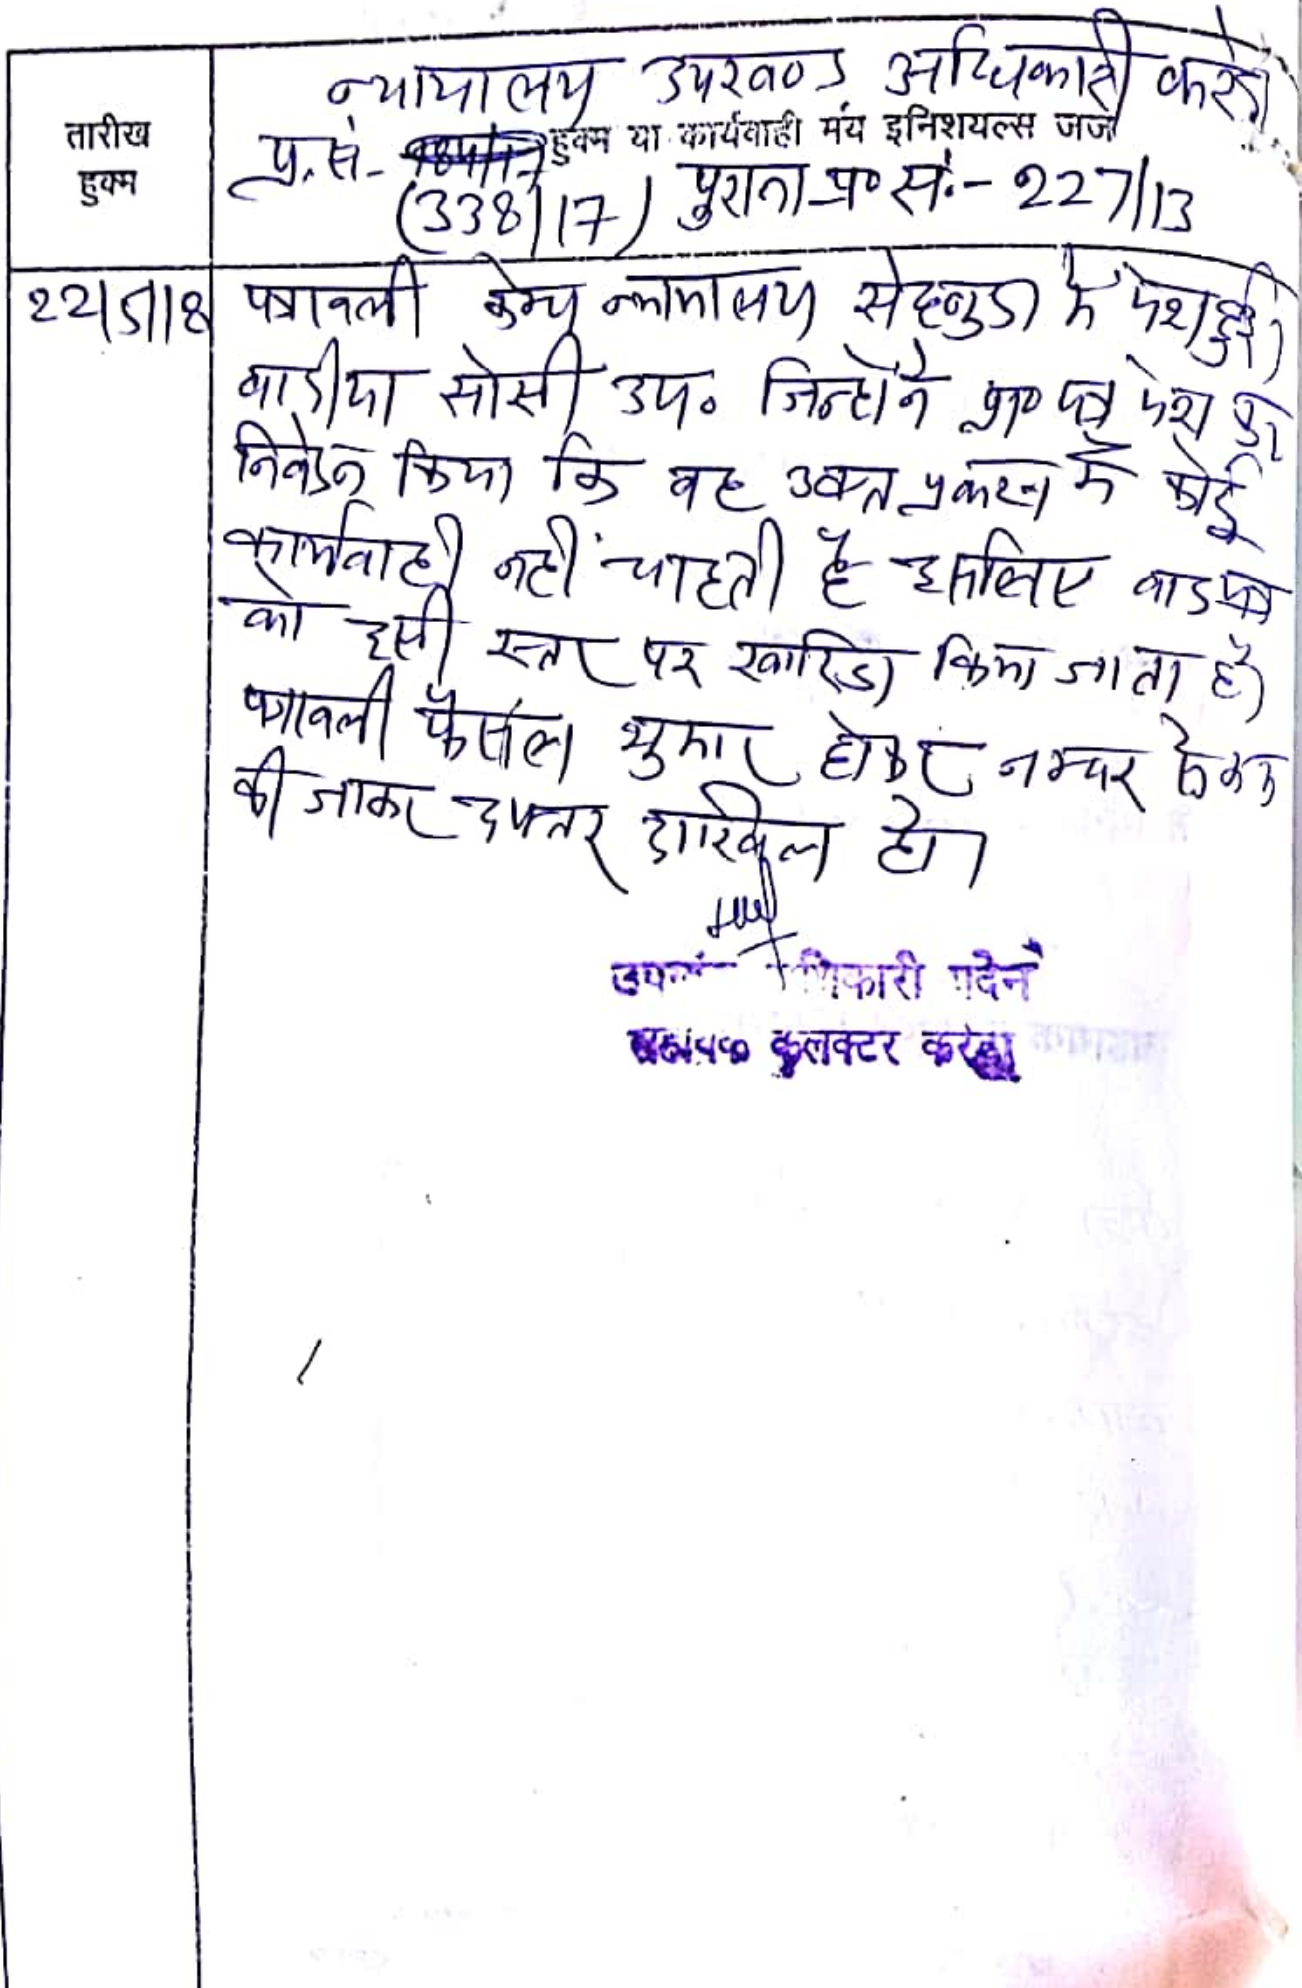 न्यायालय उपखण्ड अधिकारी करेडा
तारीख
हुक्म
हुक्म या कार्यवाही मंय इनिशयल्स जज
प्र.सं.-
(338/17) पुराना प्र० सं.- 227/13
22/5/18
पत्रावली केम्प न्यायालय में पेश हुई।
वादीया सोसी उप० जिन्होंने प्रा० पत्र पेश कर
निवेदन किया कि वह उक्त प्रकरण में कोई
कार्यवाही नहीं चाहती है इसलिए वाद पत्र
को इसी स्तर पर खारिज किया जाता है।
पत्रावली फैसल शुमार होकर नम्बर से कम
की जाकर दफ्तर दाखिल हो।
पदेन
कलक्टर करेडा